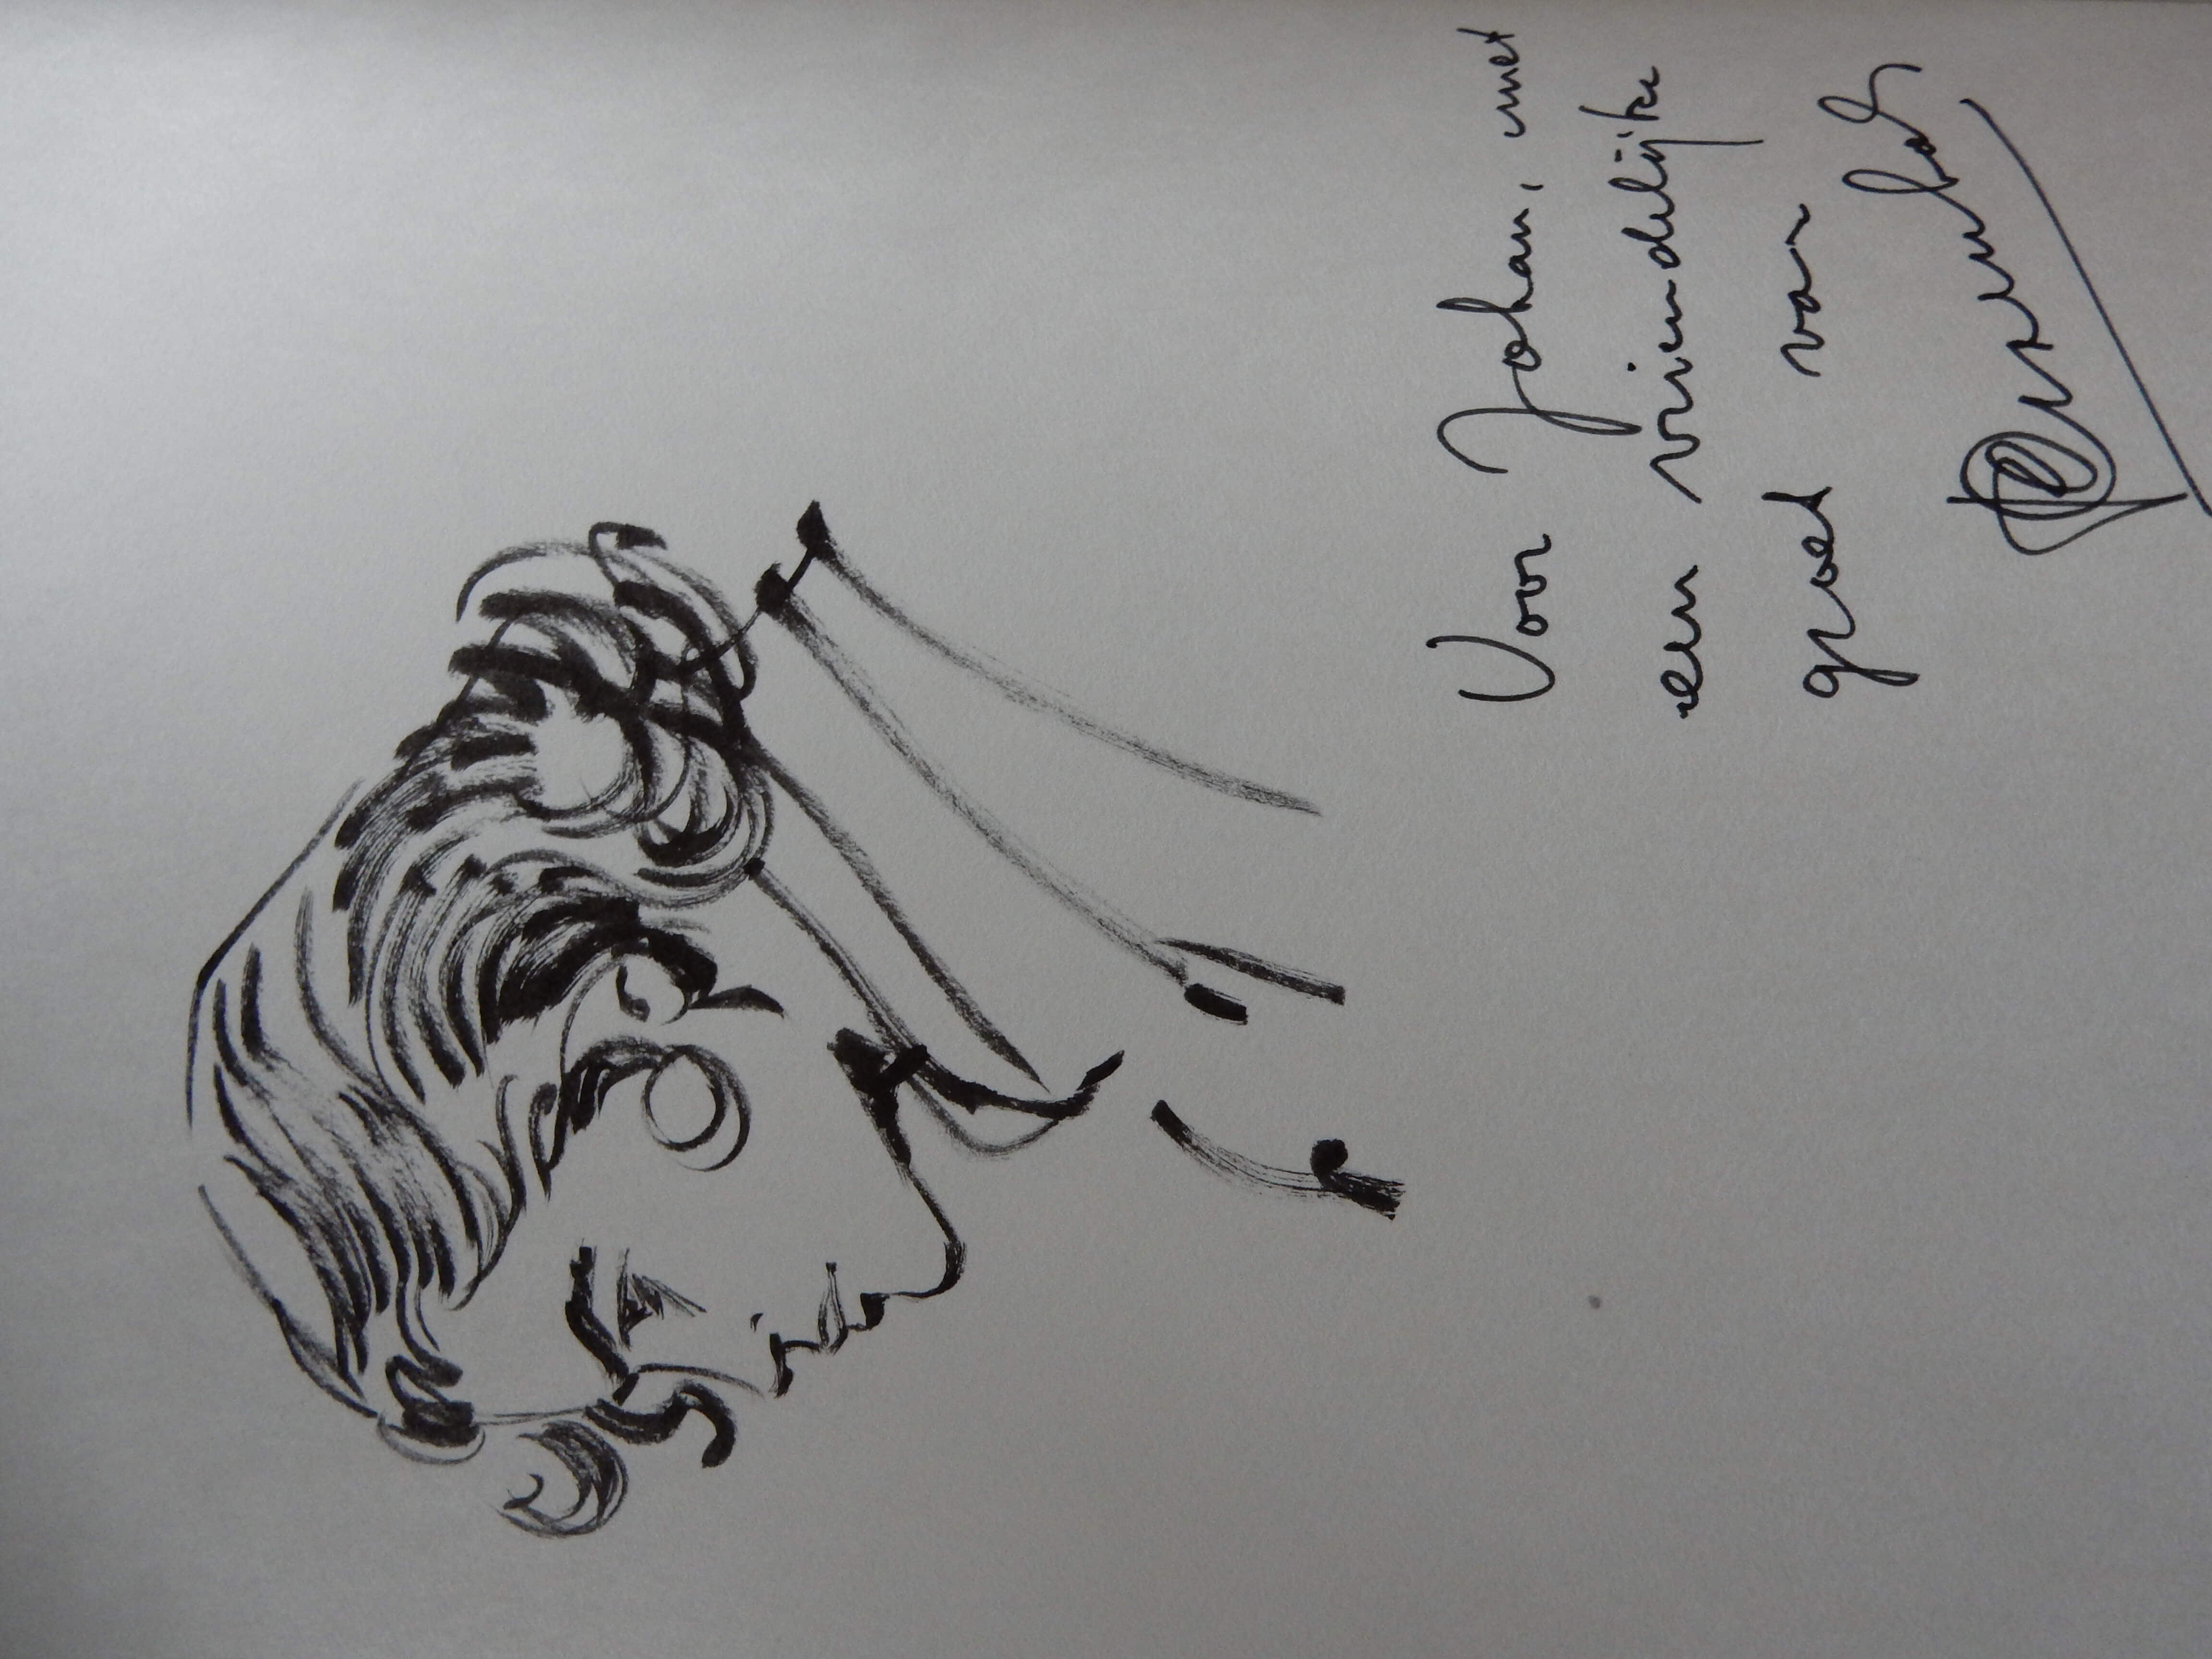 Voor Johan, met
een vriendelijke
groet van